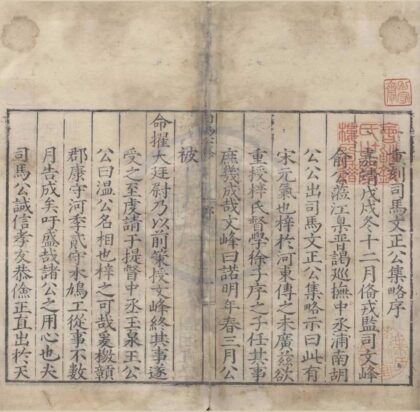 重刻司馬文正公集略序
嘉靖戊戌冬十二月俻戎監司文峰
俞公蒞江渠晋謁巡撫中丞浦南胡
公公出司馬文正公集略示曰此有
宋元氣也梓於河東傳之未廣茲欲
重授梓氏督學徐子序之子任其事
庶幾成哉文峰曰諾明年春三月公
被
命擢大廷尉乃以前筞授文峰終其事遂
受之至虔請于提督中丞玉泉王公
公曰溫公名相也梓之可哉爰檄贑
郡康守河李貳守水鳩工從事不數
月告成矣吁盛哉諸公之用心也夫
司馬公誠信孝友恭儉正直出於天